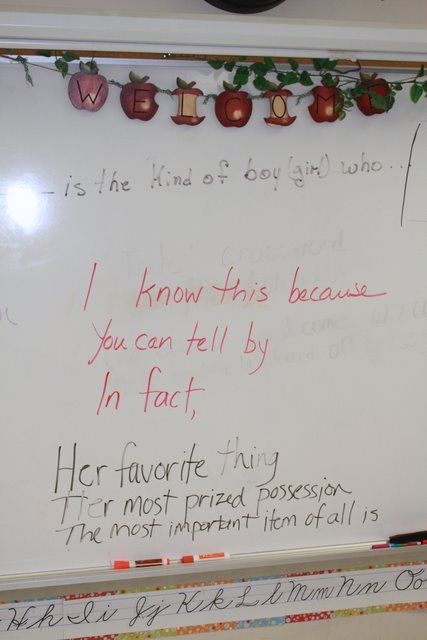 WELCOME
is the kind of boy (girl) who...
I know this because
You can tell by
In fact,
Her favorite thing
Her most prized possession
The most important item of all is
Hh Ii Jj Kk Ll Mm Nn Oo